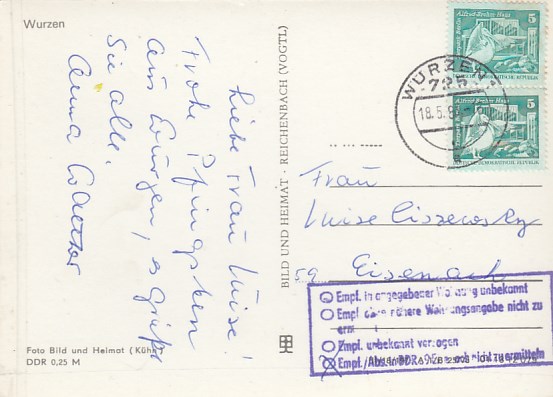 Wurzen
Liebe Frau Luise!
Frohe Pfingsten
aus Wurzen, es grüßt
Sie alle,
Anna Walther
Foto Bild und Heimat (Kühn)
DDR 0,25 M
BILD UND HEIMAT · REICHENBACH (VOGTL)
Alfred-Brehm-Haus
5
DEUTSCHE DEMOKRATISCHE REPUBLIK
Alfred-Brehm-Haus
5
DEUTSCHE DEMOKRATISCHE REPUBLIK
WURZEN 1
725
18.5.
Frau
Luise Ciszewsky
59 Eisenach
Empf. in angegebener Wohnung unbekannt
Empf. ohne nähere Wohnungsangabe nicht zu
ermi
Empf. unbekannt verzogen
Empf./Abs. nicht zu ermitteln